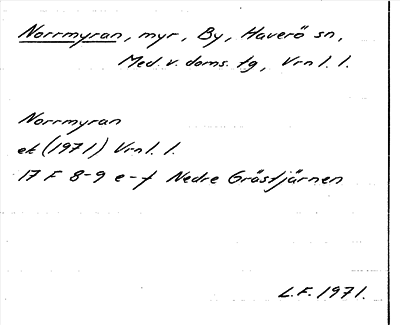 Norrmyran, myr, By, Haverö sn,
Med. v. doms. tg, Vrnl. l.
Norrmyran
ek (1971) Vrnl. l.
17 F 8-9 e-f Nedre Gråstjärnen
L.F. 1971.